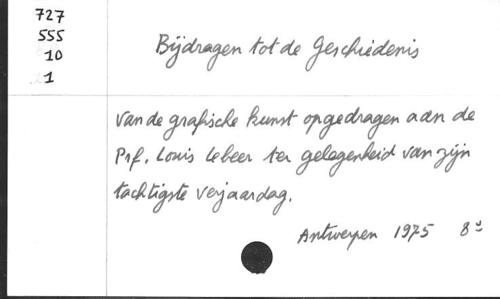 727
555
10
1
Bijdragen tot de Geschiedenis
van de grafische kunst opgedragen aan de
Prf. Louis Lebeer ter gelegenheid van zijn
tachtigste verjaardag.
Antwerpen 1975 8°